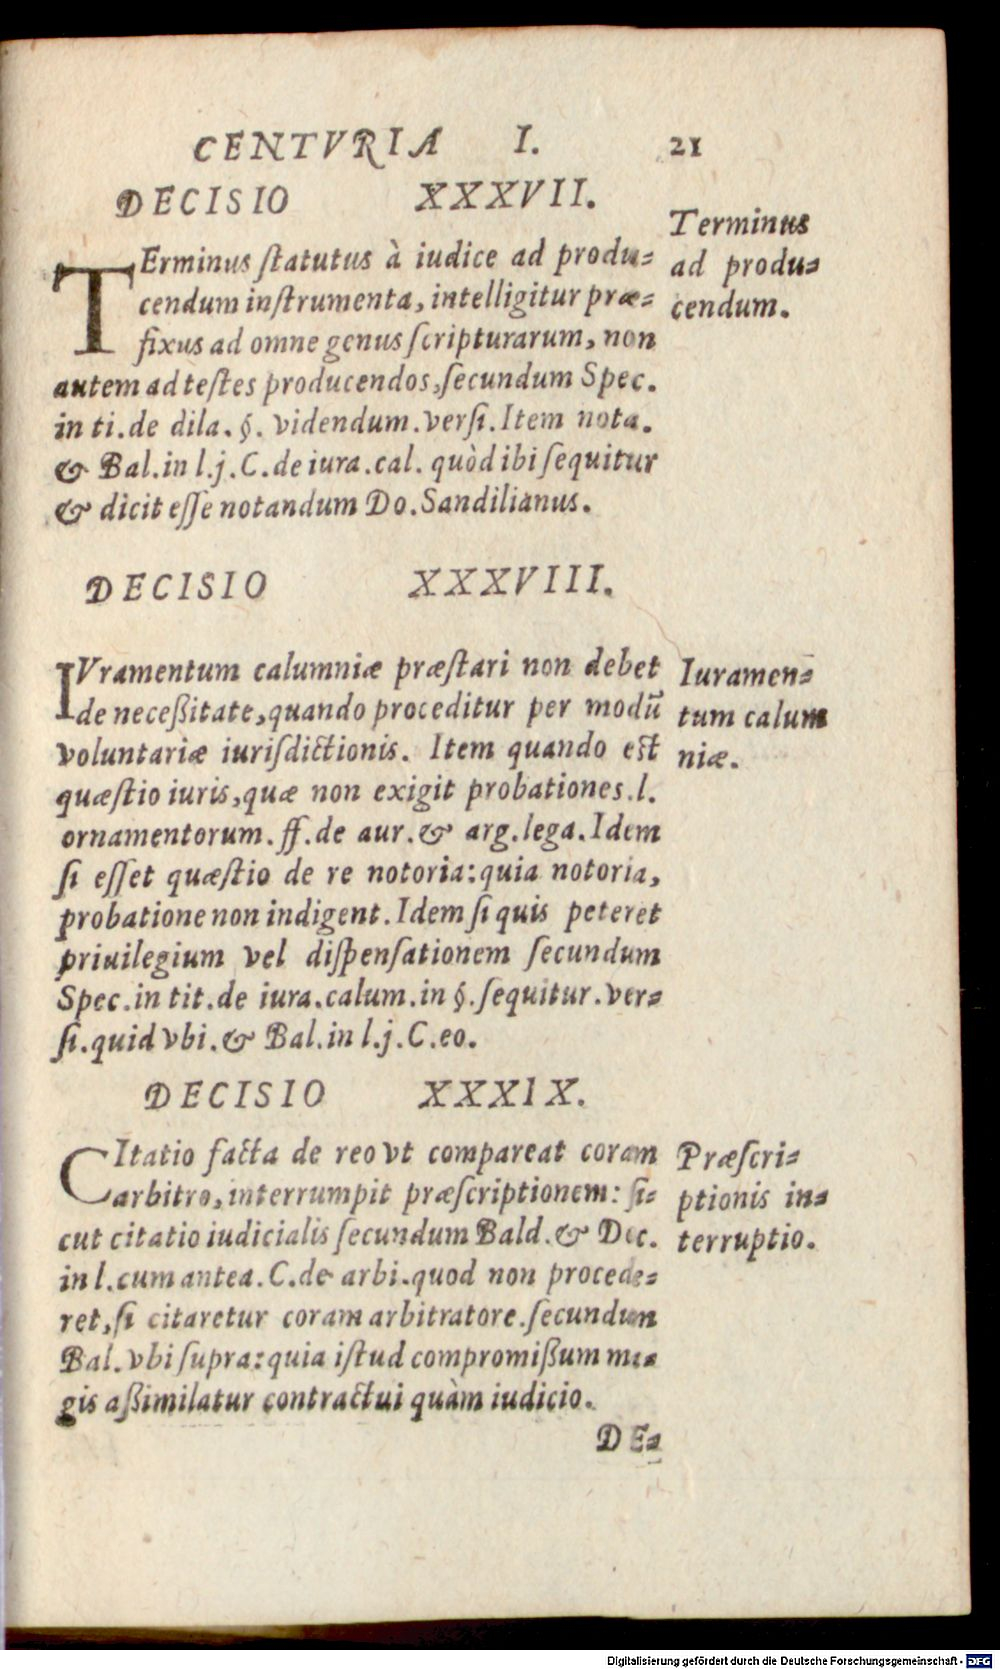 CENTVRIA I. 21
DECISIO XXXVII.
TErminus ſtatutus à iudice ad produ-
cendum inſtrumenta, intelligitur præ-
fixus ad omne genus ſcripturarum, non
autem ad teſtes producendos, ſecundum Spec.
in ti. de dila. §. videndum. verſi. Item nota.
& Bal. in l. j. C. de iura. cal. quòd ibi ſequitur
& dicit eſſe notandum Do. Sandilianus.
Terminus
ad produ-
cendum.
DECISIO XXXVIII.
IVramentum calumniæ præſtari non debet
de neceßitate, quando proceditur per modũ
voluntariæ iuriſdictionis. Item quando eſt
quæſtio iuris, quæ non exigit probationes. l.
ornamentorum. ff. de aur. & arg. lega. Idem
ſi eſſet quæſtio de re notoria: quia notoria,
probatione non indigent. Idem ſi quis peteret
priuilegium vel diſpenſationem ſecundum
Spec. in tit. de iura. calum. in §. ſequitur. ver-
ſi. quid vbi. & Bal. in l. j. C. eo.
Iuramen-
tum calum
niæ.
DECISIO XXXIX.
CItatio facta de reo vt compareat coram
arbitro, interrumpit præſcriptionem: ſi-
cut citatio iudicialis ſecundum Bald. & Dec.
in l. cum antea. C. de arbi. quod non procede-
ret, ſi citaretur coram arbitratore. ſecundum
Bal. vbi ſupra: quia iſtud compromißum ma-
gis aßimilatur contractui quàm iudicio.
Præſcri-
ptionis in-
terruptio.
DE-
Digitalisierung gefördert durch die Deutsche Forschungsgemeinschaft - DFG